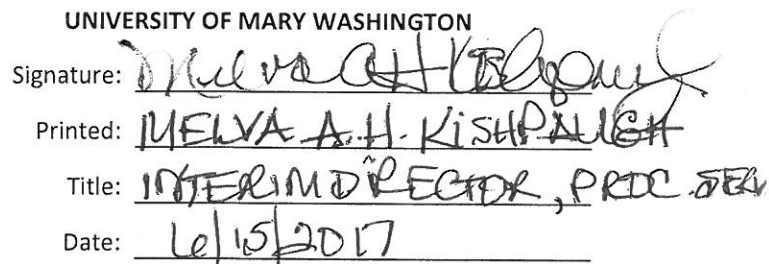 UNIVERSITY OF MARY WASHINGTON
Signature: Melva A H Kishpaugh
Printed: MELVA A.H. KISHPAUGH
Title: INTERIM DIRECTOR, PROC. SERV
Date: 6/15/2017